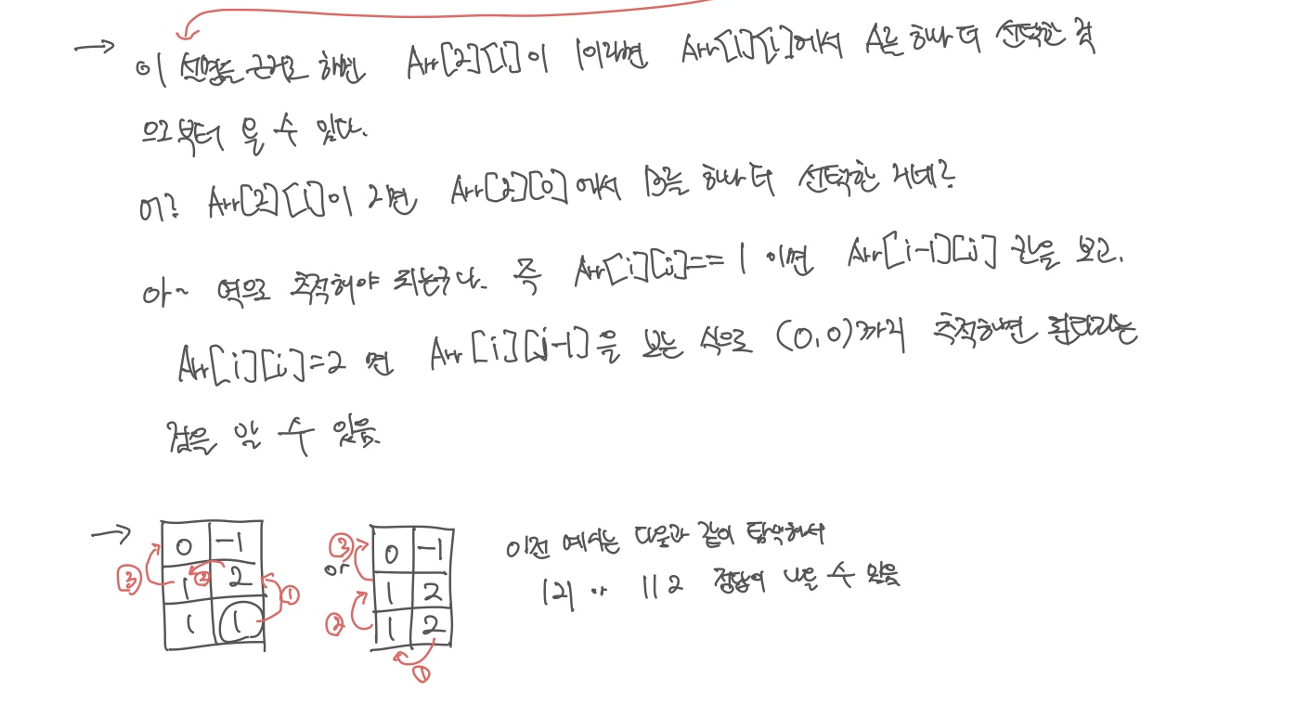 → 이 설명을 근거로 하면 Arr[2][1]이 1이라면 Arr[1][1]에서 A를 하나 더 선택한 것
으로부터 올 수 있다.
어? Arr[2][1]이 2면 Arr[2][0]에서 B를 하나 더 선택한 거네?
아~ 역으로 추적해야 되는구나. 즉 Arr[i][j]==1 이면 Arr[i-1][j] 값을 보고,
Arr[i][j]=2 면 Arr[i][j-1]을 보는 식으로 (0,0)까지 추적하면 된다라는
걸 알 수 있음.
→ 0 -1
③ 1 ② 2 ①
1 1
or
③ 0 -1
1 2
② 1 2
①
이전 예시는 다음과 같이 탐색해서
121 or 112 정답이 나올 수 있음